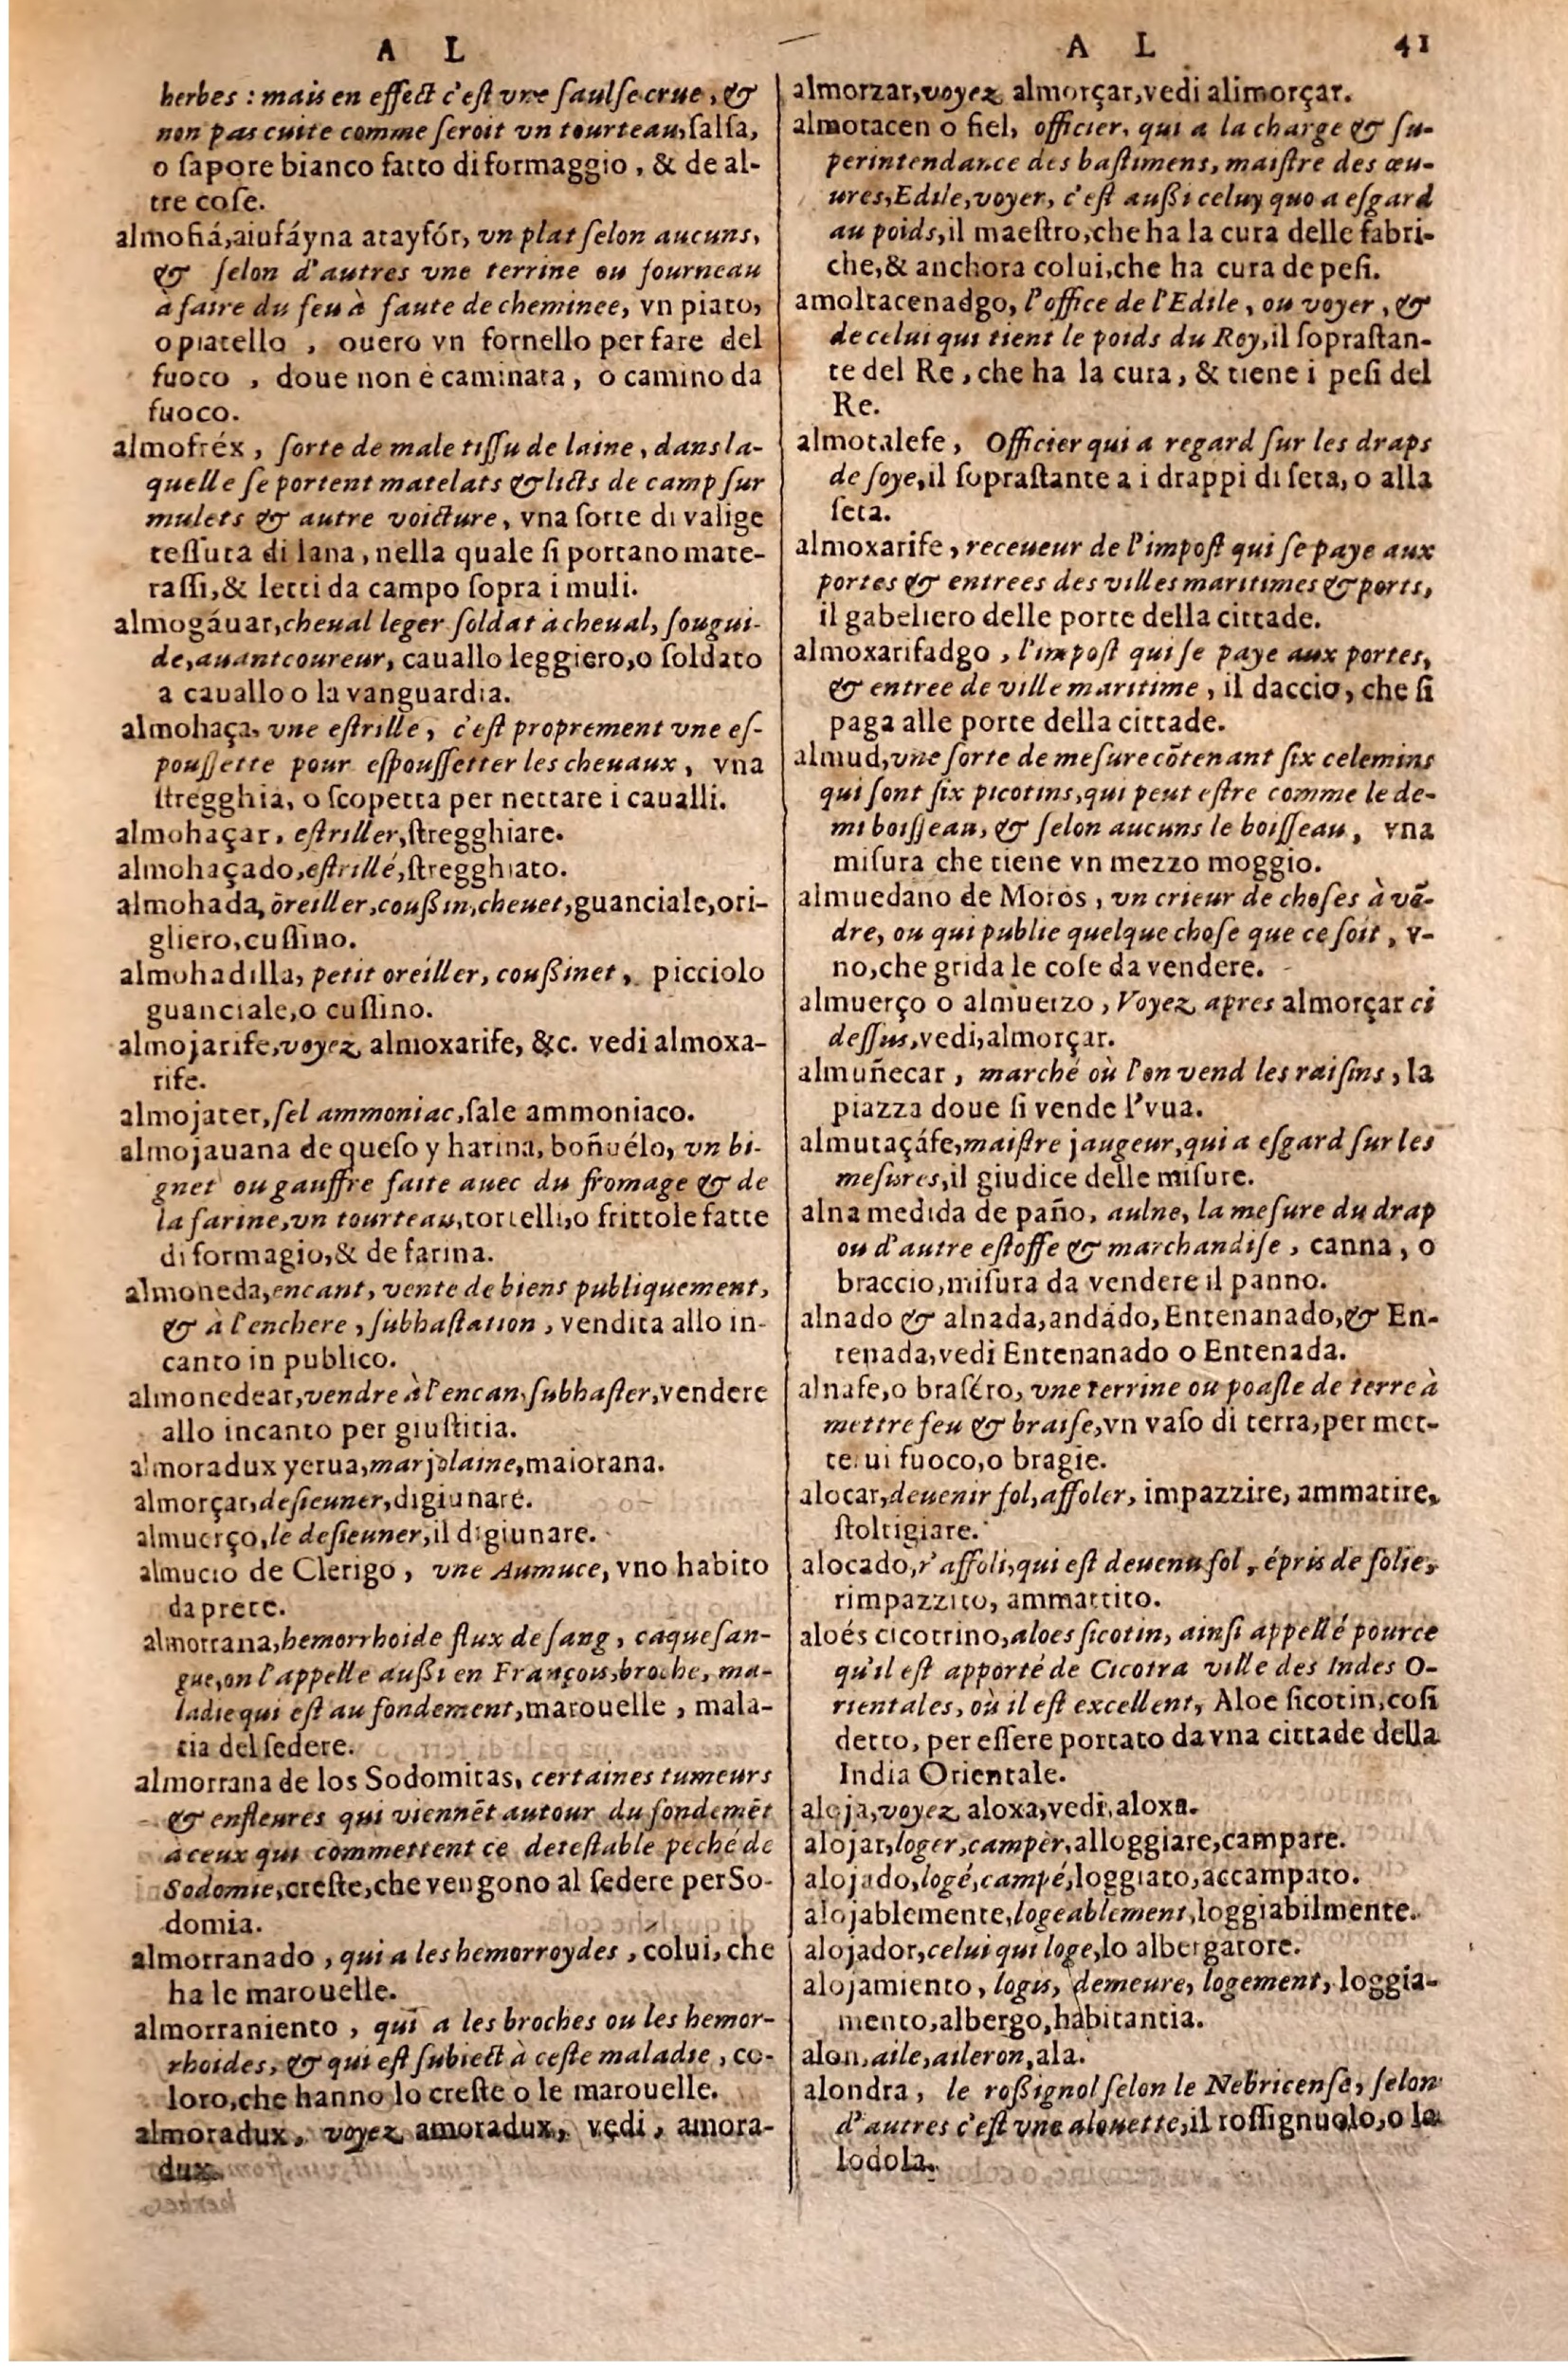 A L
herbes : mais en effect c'eſt vne ſaulſe crue, &
non pas cuite comme ſeroit vn tourteau, ſalſa,
o ſapore bianco fatto di formaggio, & de al-
tre coſe.
almofiá, aiufáyna atayfór, vn plat ſelon aucuns,
& ſelon d'autres vne terrine ou fourneau
à faire du feu à faute de cheminee, vn piato,
o piatello, ouero vn fornello per fare del
fuoco, doue non è caminata, o camino da
fuoco.
almofréx, ſorte de male tiſſu de laine, dans la-
quelle ſe portent matelats & licts de camp ſur
mulets & autre voicture, vna ſorte di valige
teſſuta di lana, nella quale ſi portano mate-
raſſi, & letti da campo ſopra i muli.
almogáuar, cheual leger ſoldat à cheual, fougui-
de, auantcoureur, cauallo leggiero, o ſoldato
a cauallo o la vanguardia.
almohaça, vne eſtrille, c'eſt proprement vne eſ-
pouſſette pour eſpouſſetter les cheuaux, vna
ſtregghia, o ſcopetta per nettare i caualli.
almohaçar, eſtriller, ſtregghiare.
almohaçado, eſtrillé, ſtregghiato.
almohada, oreiller, couſsin, cheuet, guanciale, ori-
gliero, cuſſino.
almohadilla, petit oreiller, couſsinet, picciolo
guanciale, o cuſſino.
almojarife, voyez almoxarife, &c. vedi almoxa-
rife.
almojater, ſel ammoniac, ſale ammoniaco.
almojauana de queſo y harina, boñuélo, vn bi-
gnet ou gauffre faite auec du fromage & de
la farine, vn tourteau, tortelli, o frittole fatte
di formagio, & de farina.
almoneda, encant, vente de biens publiquement,
& à l'enchere, ſubhaſtation, vendita allo in-
canto in publico.
almonedear, vendre à l'encan, ſubhaſter, vendere
allo incanto per giuſtitia.
almoradux yerua, marjolaine, maiorana.
almorçar, deſieuner, digiunare.
almuerço, le deſieuner, il digiunare.
almucio de Clerigo, vne Aumuce, vno habito
da prete.
almorrana, hemorrhoide flux de ſang, caqueſan-
gue, on l'appelle auſsi en François, broche, ma-
ladie qui eſt au fondement, marouelle, mala-
tia del ſedere.
almorrana de los Sodomitas, certaines tumeurs
& enfleures qui viennẽt autour du fondemẽt
à ceux qui commettent ce deteſtable peché de
Sodomie, creſte, che vengono al ſedere per So-
domia.
almorranado, qui a les hemorroydes, colui, che
ha le marouelle.
almorraniento, qui a les broches ou les hemor-
rhoides, & qui eſt ſubiect à ceſte maladie, co-
loro, che hanno lo creſte o le marouelle.
almoradux, voyez amoradux, vedi, amora-
dux.
A L 41
almorzar, voyez almorçar, vedi alimorçar.
almotacen o fiel, officier, qui a la charge & ſu-
perintendance des baſtimens, maiſtre des œu-
ures, Edile, voyer, c'eſt auſsi celuy quo a eſgard
au poids, il maeſtro, che ha la cura delle fabri-
che, & anchora colui, che ha cura de peſi.
amoltacenadgo, l'office de l'Edile, ou voyer, &
de celui qui tient le poids du Roy, il ſopraſtan-
te del Re, che ha la cura, & tiene i peſi del
Re.
almotalefe, Officier qui a regard ſur les draps
de ſoye, il ſopraſtante a i drappi di ſeta, o alla
ſeta.
almoxarife, receueur de l'impoſt qui ſe paye aux
portes & entrees des villes maritimes & ports,
il gabeliero delle porte della cittade.
almoxarifadgo, l'impoſt qui ſe paye aux portes,
& entree de ville maritime, il daccio, che ſi
paga alle porte della cittade.
almud, vne ſorte de meſure cõtenant ſix celemins
qui ſont ſix picotins, qui peut eſtre comme le de-
mi boiſſeau, & ſelon aucuns le boiſſeau, vna
miſura che tiene vn mezzo moggio.
almuedano de Moros, vn crieur de choſes à vẽ-
dre, ou qui publie quelque choſe que ce ſoit, v-
no, che grida le coſe da vendere.
almuerço o almuerzo, Voyez apres almorçar ci
deſſus, vedi, almorçar.
almuñecar, marché où l'on vend les raiſins, la
piazza doue ſi vende l'vua.
almutaçáfe, maiſtre jaugeur, qui a eſgard ſur les
meſures, il giudice delle miſure.
alna medida de paño, aulne, la meſure du drap
ou d'autre eſtoffe & marchandiſe, canna, o
braccio, miſura da vendere il panno.
alnado & alnada, andádo, Entenanado, & En-
tenada, vedi Entenanado o Entenada.
alnafe, o braſéro, vne terrine ou poaſle de terre à
mettre feu & braiſe, vn vaſo di terra, per met-
te. ui fuoco, o bragie.
alocar, deuenir fol, affoler, impazzire, ammatire,
ſtoltigiare.
alocado, r'affoli, qui eſt deuenu fol, épris de folie,
rimpazzito, ammattito.
aloés cicotrino, aloes ſicotin, ainſi appellé pource
qu'il eſt apporté de Cicotra ville des Indes O-
rientales, où il eſt excellent, Aloe ſicotin, coſi
detto, per eſſere portato da vna cittade della
India Orientale.
aloja, voyez aloxa, vedi, aloxa.
alojar, loger, camper, alloggiare, campare.
alojado, logé, campé, loggiato, accampato.
alojablemente, logeablement, loggiabilmente.
alojador, celui qui loge, lo albergatore.
alojamiento, logis, demeure, logement, loggia-
mento, albergo, habitantia.
alon, aile, aileron, ala.
alondra, le roſsignol ſelon le Nebricenſe, ſelon
d'autres c'eſt vne alouette, il roſſignuolo, o la
lodola.